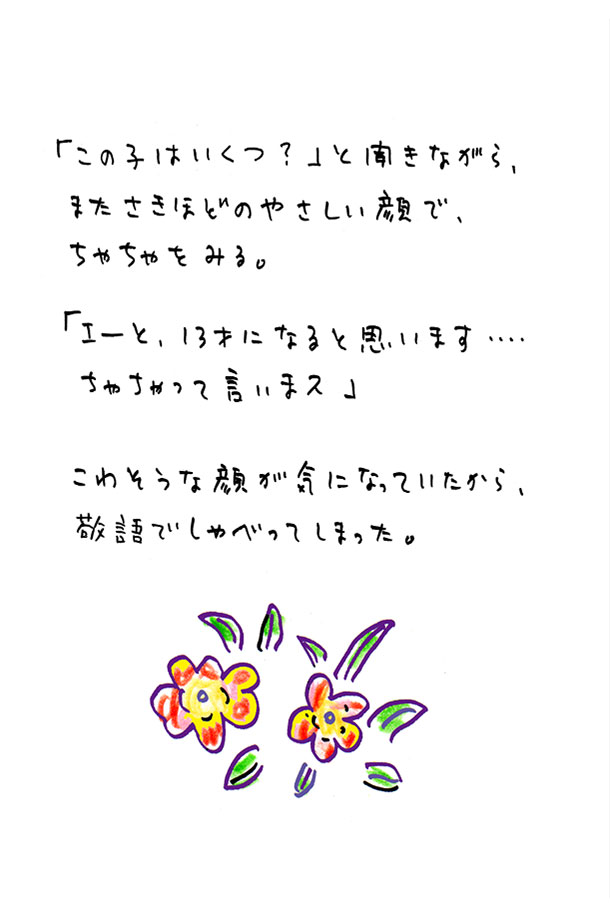 「この子はいくつ？」と聞きながら、
またさきほどのやさしい顔で、
ちゃちゃをみる。
「エーと、13才になると思います‥‥
ちゃちゃって言いまス」
こわそうな顔が気になっていたから、
敬語でしゃべってしまった。